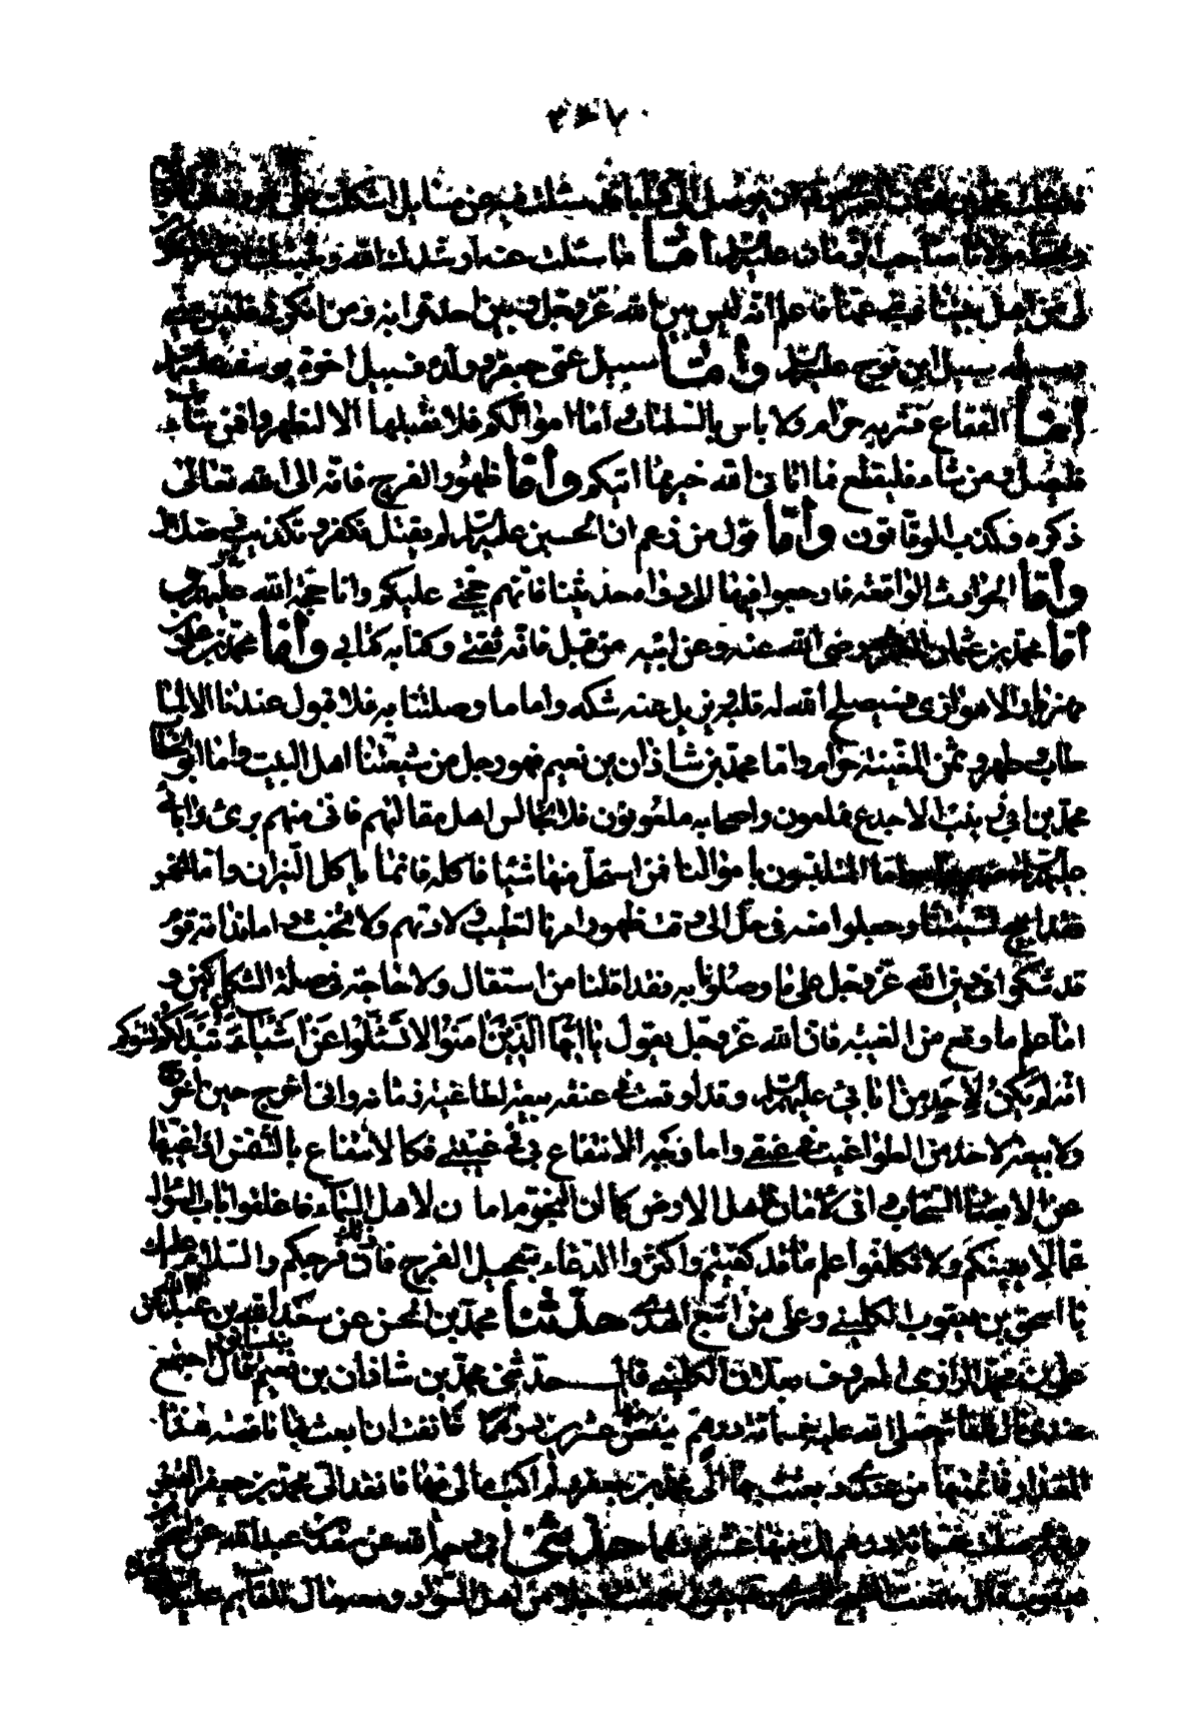 ٣٦٧
ان يوصل الى كتابا قد سئلت فيه عن مسائل اشكلت على فورد
مولانا صاحب الزمان عليه السلم اما ما سئلت عنه ارشدك الله وثبتك من امر
لى من اهل بيتنا وبنى عمنا فاعلم انه ليس بين الله عز وجل وبين احد قرابة ومن انكرنى فليس منى
وسبيله سبيل ابن نوح عليه السلم واما سبيل عمى جعفر وولده فسبيل اخوة يوسف عليه السلم
اما الفقاع فشربه حرام ولا باس بالسلمان واما اموالكم فلا نقبلها الا لتطهروا فمن شاء
فليصل ومن شاء فليقطع فما اتانى الله خير مما اتيكم واما ظهور الفرج فانه الى الله تعالى
ذكره وكذب الوقاتون واما قول من زعم ان الحسين عليه السلم لم يقتل فكفر وتكذيب وضلال
واما الحوادث الواقعة فارجعوا فيها الى رواه حديثنا فانهم حجتى عليكم وانا حجة الله عليهم و
اما محمد بن عثمان العمرى رضى الله عنه وعن ابيه من قبل فانه ثقتى وكتابه كتابى واما محمد بن على بن
مهزيار الاهوازى فسيصلح الله له قلبه ويزيل عنه شكه واما ما وصلتنا به فلا قبول عندنا الا لما
طاب وطهر وثمن المغنية حرام واما محمد بن شاذان بن نعيم فهو رجل من شيعتنا اهل البيت واما ابو الخطاب
محمد بن ابى زينب الاجدع فملعون واصحابه ملعونون فلا تجالس اهل مقالتهم فانى منهم برىء وابائى
عليهم السلم منهم براء واما المتلبسون باموالنا فمن استحل منها شيئا فاكله فانما ياكل النيران واما الخمس
فقد ابيح لشيعتنا وجعلوا منه فى حل الى وقت ظهور امرنا لتطيب ولادتهم ولا تخبث واما ندامة قوم
قد شكوا فى دين الله عز وجل على ما وصلونا به فقد اقلنا من استقال ولا حاجة فى صلة الشاكين و
اما علة ما وقع من الغيبة فان الله عز وجل يقول يا ايها الذين امنوا لا تسئلوا عن اشياء ان تبد لكم تسؤكم
انه لم يكن لاحد من ابائى عليهم السلم الا وقد وقعت فى عنقه بيعة لطاغية زمانه وانى اخرج حين اخرج
ولا بيعة لاحد من الطواغيت فى عنقى واما وجه الانتفاع بى فى غيبتى فكالانتفاع بالشمس اذا غيبها
عن الابصار السحاب وانى لامان لاهل الارض كما ان النجوم امان لاهل السماء فاغلقوا باب السؤال
عما لا يعنيكم ولا تتكلفوا علم ما قد كفيتم واكثروا الدعاء بتعجيل الفرج فان ذلك فرجكم والسلام عليك
يا اسحق بن يعقوب الكلينى وعلى من اتبع الهدى حدثنا محمد بن الحسن عن سعد بن عبد الله عن
على بن محمد الرازى المعروف بعلان الكلينى قال حدثنى محمد بن شاذان بن نعيم النيسابورى قال اجتمع
عندى مال للقائم صلى الله عليه خمسمائة درهم ينقص منها عشرين درهما فانفت ان ابعث بها ناقصة هذا
المقدار فاتممتها من عندى وبعثت بها الى محمد بن جعفر ولم اكتب مالى فيها فانفذ الى محمد بن جعفر القبض
وفيه وصلت خمسمائة درهم لك منها عشرون درهما حدثنى ابى رحمه الله عن سعد بن عبد الله عن اسحق بن
يعقوب قال سمعت الشيخ العمرى يقول صحبت رجلا من اهل السواد ومعه مال للقائم عليه السلم